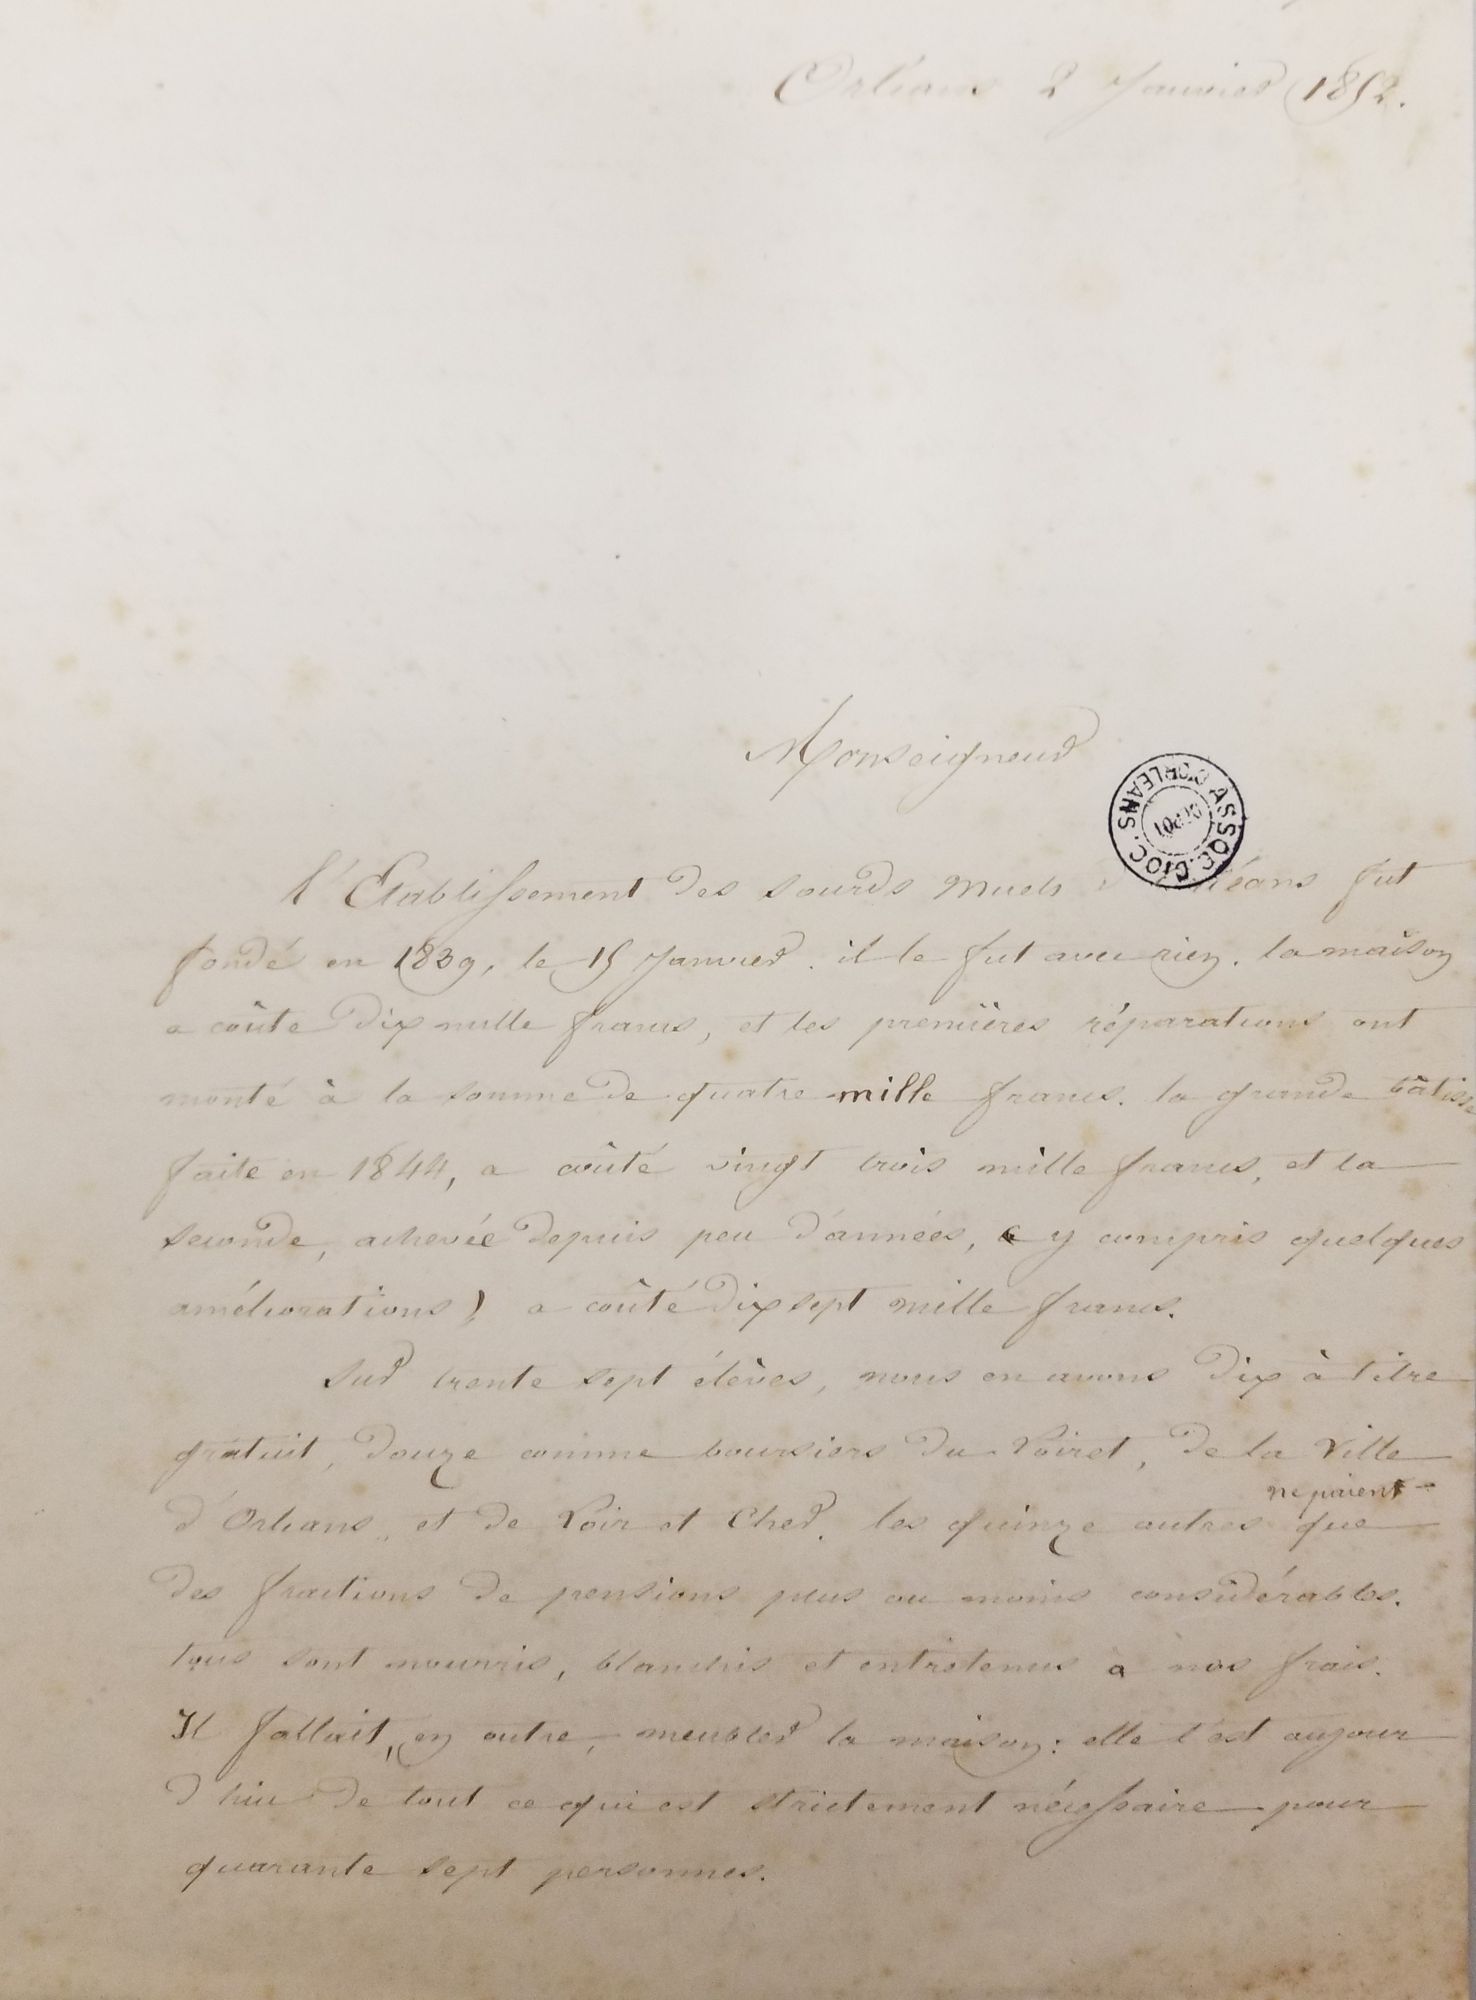 Orléans 2 Janvier 1852.
Monseigneur
ASSOC. DIOC. D'ORLEANS
l'Etablissement des sourds muets d'Orléans fut
fondé en 1839, le 15 Janvier. il le fut avec rien. la maison
a coûte dix mille francs, et les premières réparations ont
monté à la somme de quatre mille francs. la grande bâtisse
faite en 1844, a coûté vingt trois mille francs, et la
seconde, achevée depuis peu d'années, (y compris quelques
améliorations) a coûté dix sept mille francs.
Sur trente sept élèves, nous en avons dix à titre
gratuit, douze comme boursiers du Loiret, de la Ville
d'Orléans, et de Loir et Cher. les quinze autres ne paient que
des fractions de pensions plus ou moins considérables.
tous sont nourris, blanchis et entretenus a nos frais.
Il fallait, en outre, meubler la maison: elle l'est aujour
d'hui de tout ce qui est strictement nécessaire pour
quarante sept personnes.